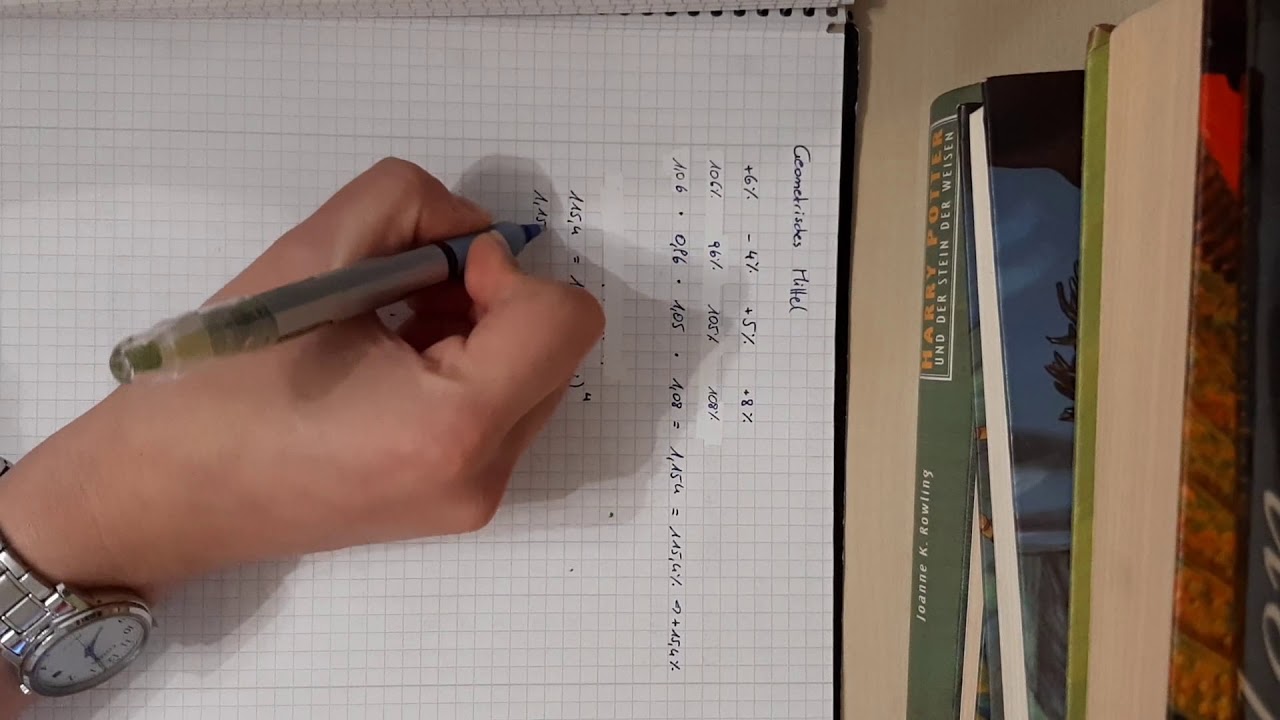 Geometrisches Mittel
+6% - 4% +5% +8%
106% 96% 105% 108%
106 · 0,96 · 1,05 · 1,08 = 1,154 = 115,4% → +15,4%
115,4 = 1 )⁴
1,15
HARRY POTTER
UND DER STEIN DER WEISEN
Joanne K. Rowling